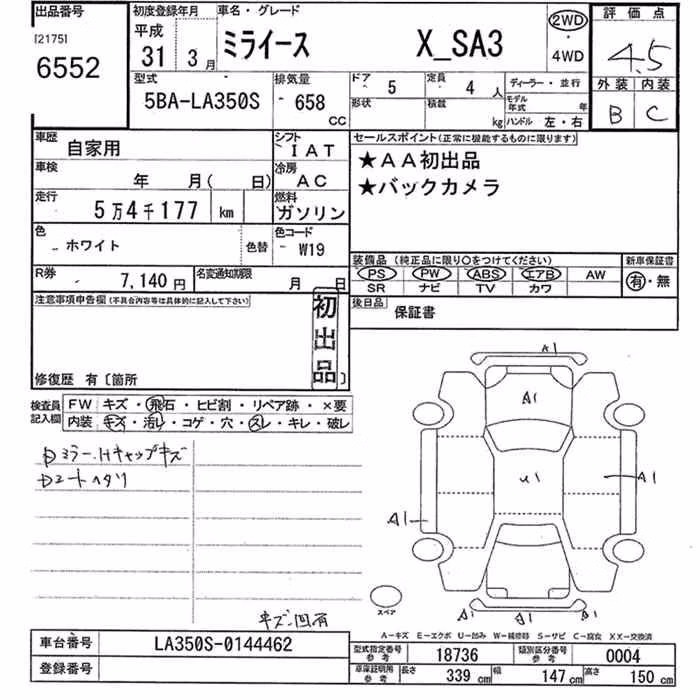 出品番号
[2175]
6552
初度登録年月
平成
31 3 月
車名・グレード
ミライース X_SA3
2WD
・
4WD
評価点
4.5
外装 内装
B C
型式
5BA-LA350S
排気量
- 658
CC
ドア
- 5
定員
- 4 人
形状
積載
kg
ディーラー・並行
モデル
年式 年
ハンドル 左・右
車歴
自家用
シフト
IAT
車検
年 月( 日)
冷房
AC
走行
5万4千177 km
燃料
ガソリン
色
- ホワイト
色替
色コード
- W19
R券
7,140 円
名変通知期限
月 日
セールスポイント(正常に機能するものに限ります)
★AA初出品
★バックカメラ
装備品(純正品に限り○をつけてください)
PS PW ABS エアB AW
SR ナビ TV カワ
新車保証書
有・無
後日品
保証書
注意事項申告欄(不具合内容等は具体的に記入して下さい)
初出品
修復歴 有〔箇所 〕
検査員
記入欄
FW キズ・飛石・ヒビ割・リペア跡・×要
内装 キズ・汚レ・コゲ・穴・スレ・キレ・破レ
ミラー.Hキャップキズ
シートヘタリ
A1
A1
U1
A1
A1
スペア
A1
キズ・凹有
A-キズ E-エクボ U-凹み W-補修跡 S-サビ C-腐食 XX-交換済
車台番号
LA350S-0144462
登録番号
型式指定番号
参考
18736
類別区分番号
参考
0004
車庫証明用
参考
長さ 339 cm
幅 147 cm
高さ 150 cm